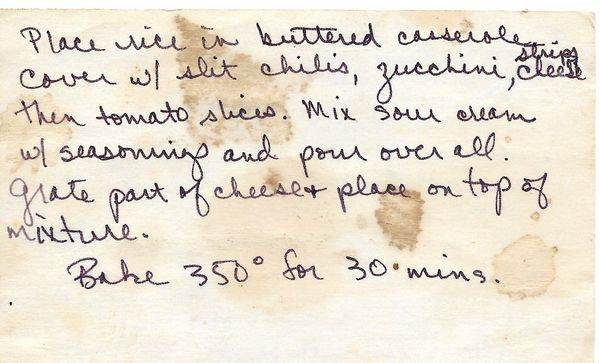 Place rice in buttered casserole.
Cover w/ slit chilis, zucchini, cheese strips
then tomato slices. Mix sour cream
w/ seasonings and pour over all.
Grate part of cheese & place on top of
mixture.
Bake 350° for 30 mins.